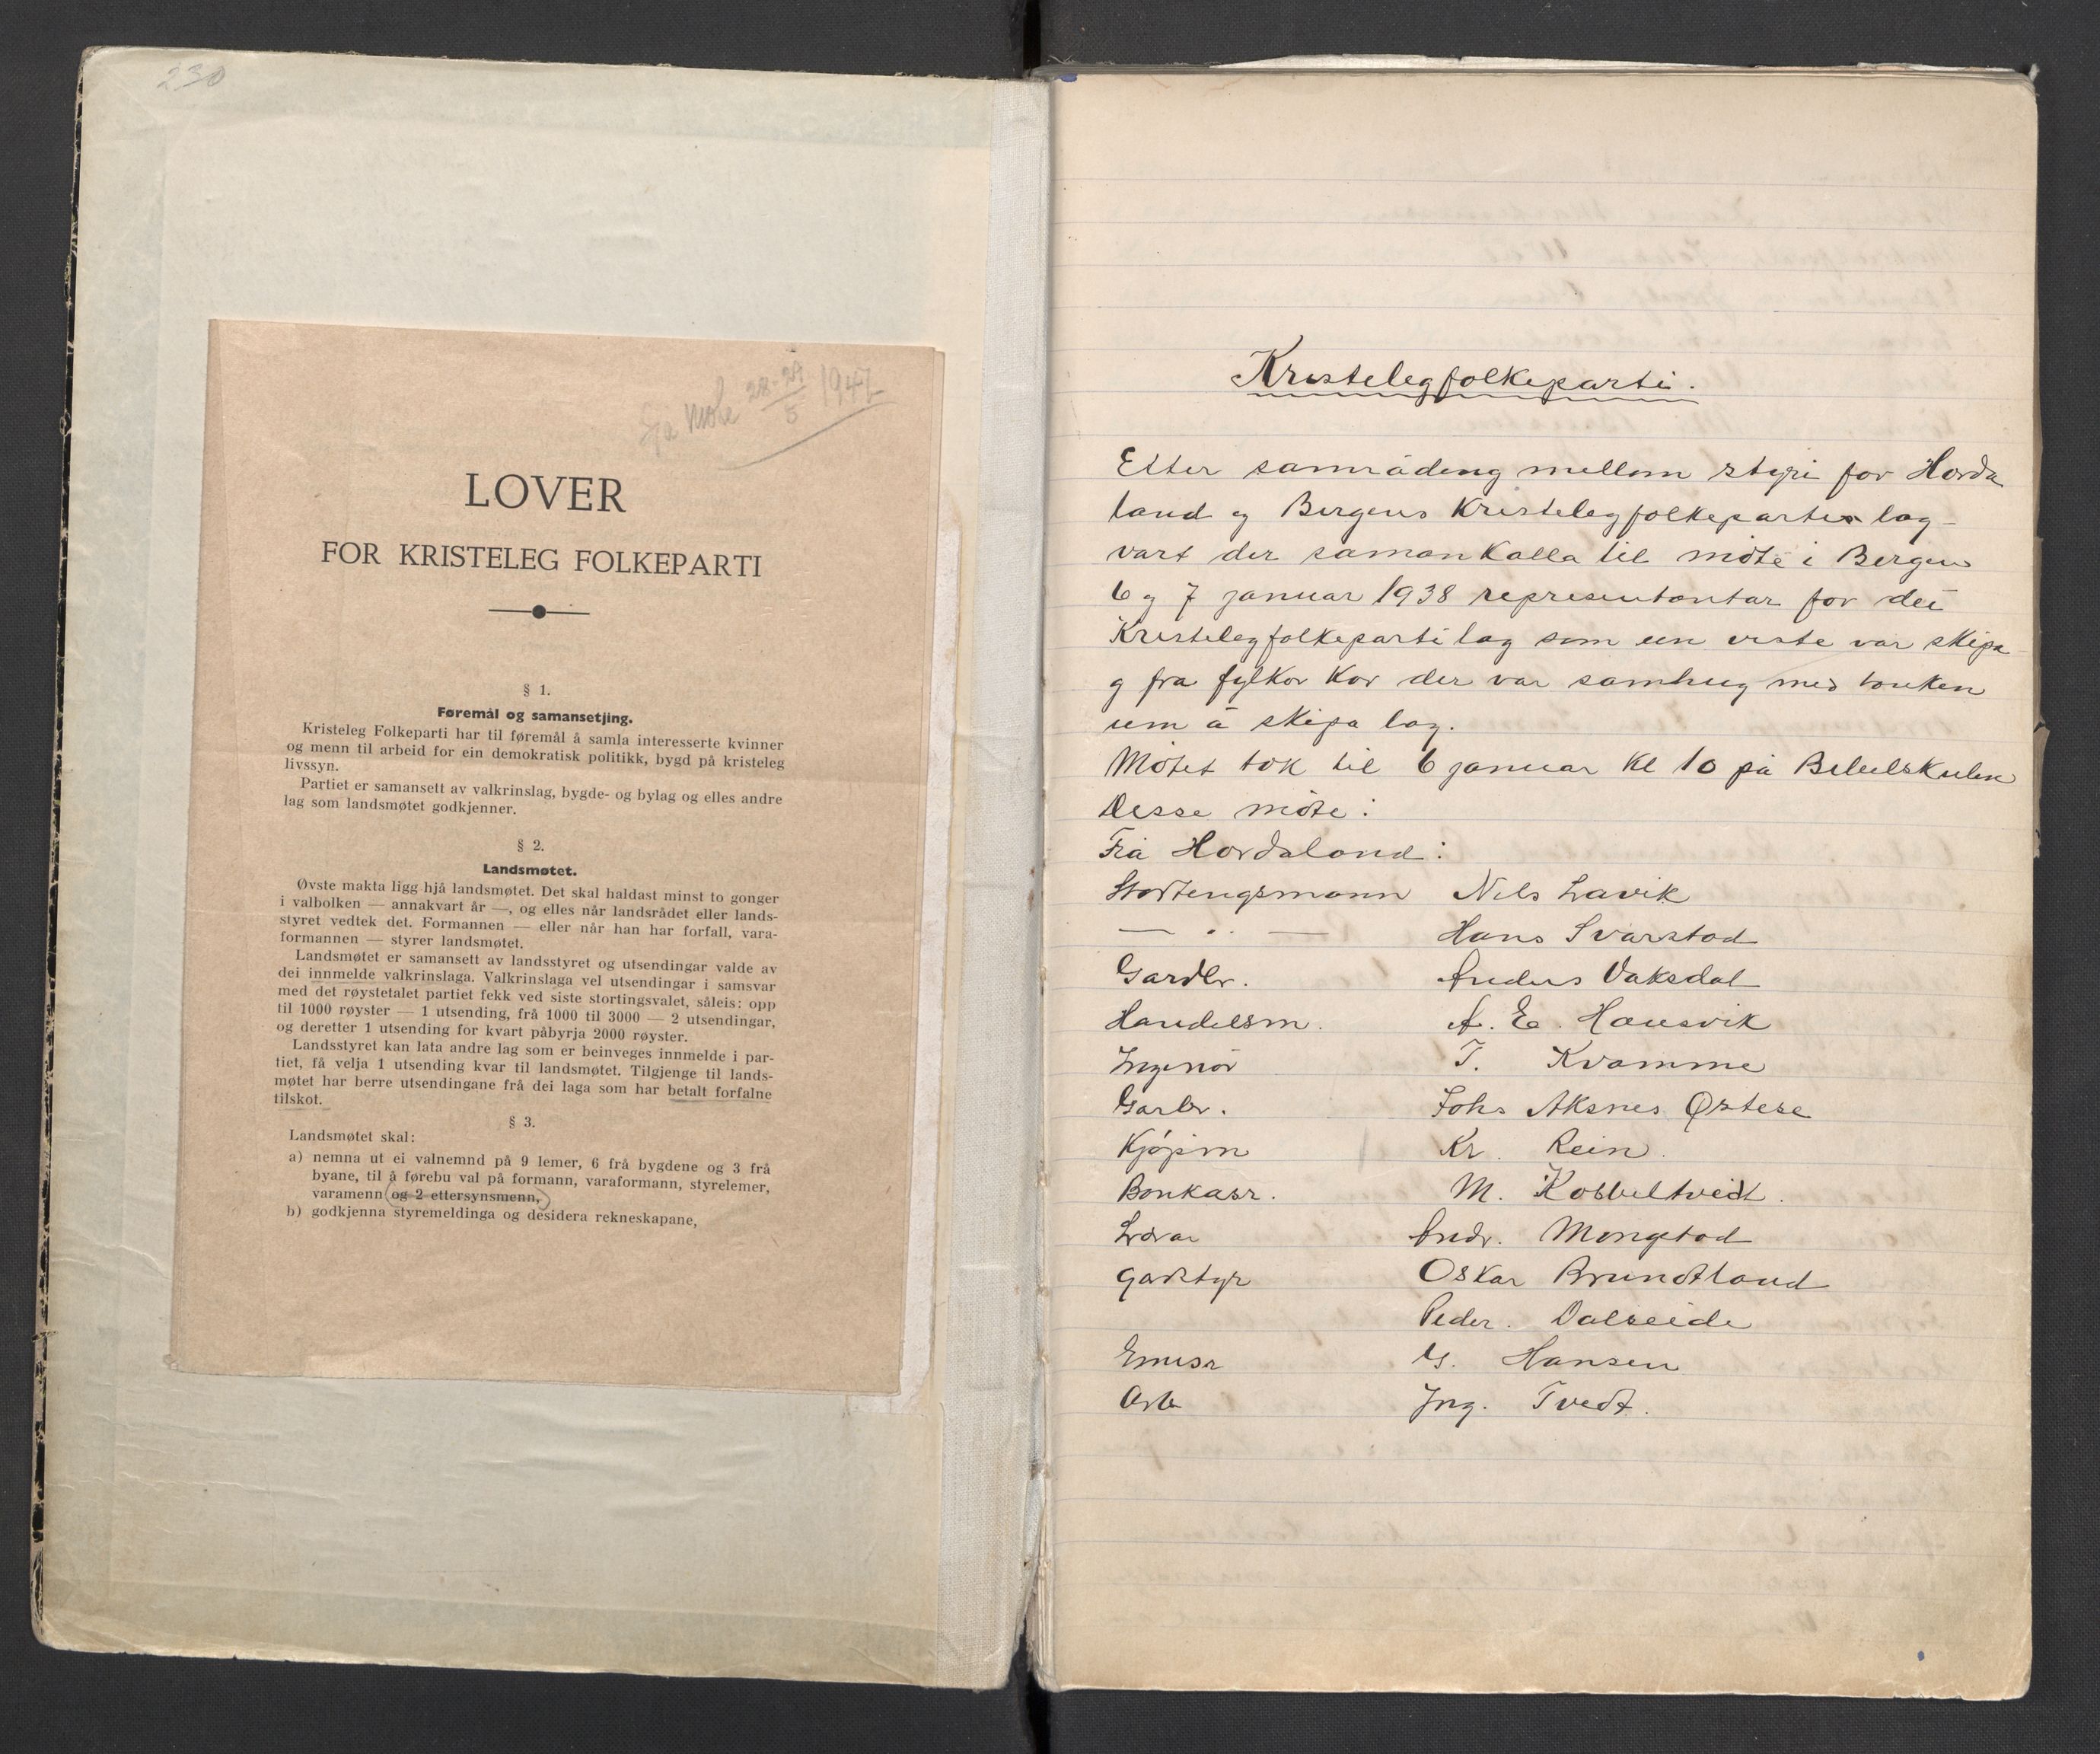 230
møte 28-29/5 1947
LOVER
FOR KRISTELEG FOLKEPARTI
§ 1.
Føremål og samansetjing.
Kristeleg Folkeparti har til føremål å samla interesserte kvinner
og menn til arbeid for ein demokratisk politikk, bygd på kristeleg
livssyn.
Partiet er samansett av valkrinslag, bygde- og bylag og elles andre
lag som landsmøtet godkjenner.
§ 2.
Landsmøtet.
Øvste makta ligg hjå landsmøtet. Det skal haldast minst to gonger
i valbolken — annakvart år —, og elles når landsrådet eller lands-
styret vedtek det. Formannen — eller når han har forfall, vara-
formannen — styrer landsmøtet.
Landsmøtet er samansett av landsstyret og utsendingar valde av
dei innmelde valkrinslaga. Valkrinslaga vel utsendingar i samsvar
med det røystetalet partiet fekk ved siste stortingsvalet, såleis: opp
til 1000 røyster — 1 utsending, frå 1000 til 3000 — 2 utsendingar,
og deretter 1 utsending for kvart påbyrja 2000 røyster.
Landsstyret kan lata andre lag som er beinveges innmelde i par-
tiet, få velja 1 utsending kvar til landsmøtet. Tilgjenge til lands-
møtet har berre utsendingane frå dei laga som har betalt forfalne
tilskot.
§ 3.
Landsmøtet skal:
a) nemna ut ei valnemnd på 9 lemer, 6 frå bygdene og 3 frå
byane, til å førebu val på formann, varaformann, styrelemer,
varamenn og 2 ettersynsmenn,
b) godkjenna styremeldinga og desidera rekneskapane,
Kristelegfolkeparti.
Etter samråding mellom styri for Horda
land og Bergens Kristelegfolkepartis lag
vart der samankalla til møte i Bergen
6 og 7 januar 1938 representantar for dei
Kristelegfolkeparti lag som ein viste var skipa
og fra fylkor kor der var samhug med tanken
um å skipa lag.
Møtet tok til 6 januar kl 10 på Bibelskulen
Desse møte:
Frå Hordaland:
Stortingsmann Nils Lavik
— .. — Hans Svarstad
Gardbr. Anders Vaksdal
Handelsm. A. E. Hausvik
Ingeniør T. Kvamme
Garbr. Johs Aksnes Østese
Kjøpm Kr. Rein.
Bankass. M. Kobbeltvedt.
Lærar Andr. Mongstad
Gardstyr Oskar Brundtland
Peder. Dalseide
Emisr G. Hansen
Arb Ing. Tvedt.